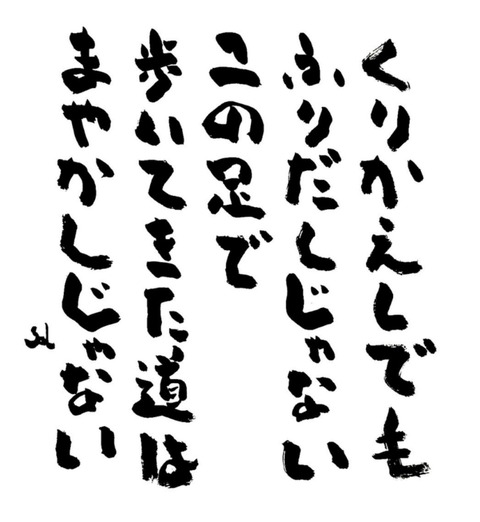 くりかえしでも
ふりだしじゃない
この足で
歩いてきた道は
まやかしじゃない